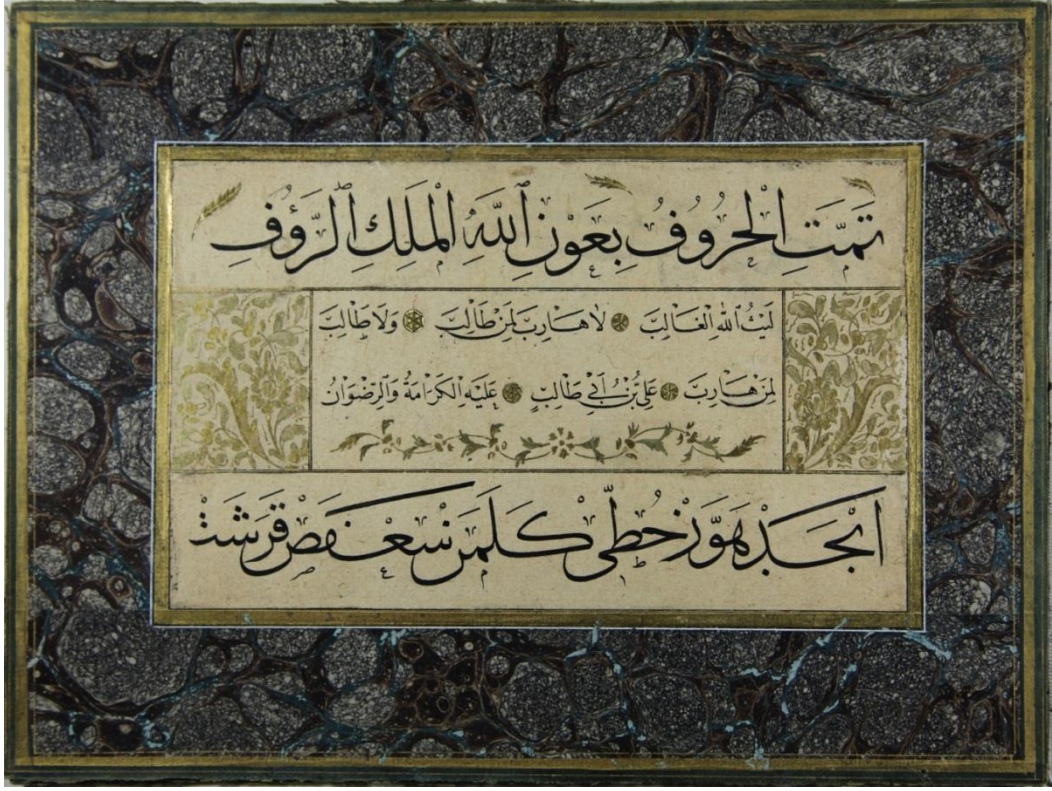 تَمَّتِ الْحُرُوفُ بِعَوْنِ ٱللّٰهِ الْمَلِكِ الرَّؤُفِ
لَيْثُ ٱللّٰهِ الْغَالِبَ لَا هَارِبَ لِمَنْ طَالِبَ وَلَا طَالِبَ
لِمَنْ هَارِبَ عَلِيُّ بْنُ أَبِي طَالِبٍ عَلَيْهِ الْكَرَامَةُ وَالرِّضْوَانُ
اَبْجَدْ هَوَّزْ حُطِّي كَلَمَنْ سَعْفَصْ قَرَشَتْ